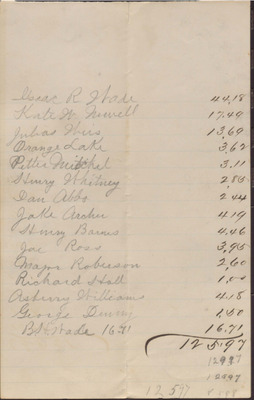 Isaac R Wade 44.18
Kate W. Newell 17.49
Julias 13,69
Orange Lake 3.62
Petter Mitchel 3.11
Henry Whitney 2.85
Dan Abbo 2.44
Jake Archer 4.19
Henry Barnes 4.46
Joe Ross 3,95
Major Roberson 2,60
Richard Hall 1.00
Asbury Williams 4.18
George Denny 1.50
B.H. Wade 16.71 16.71
125.97
12597
12597
12597